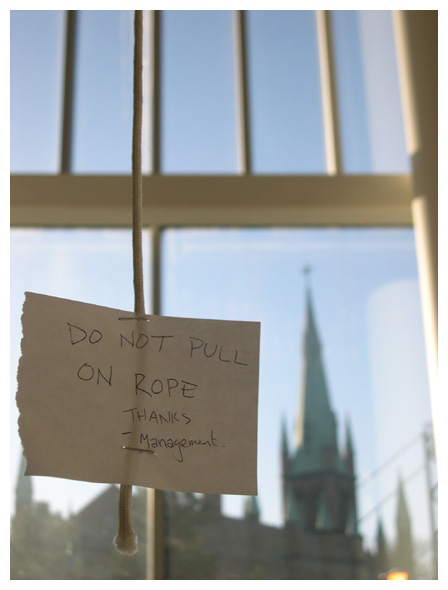 DO NOT PULL
ON ROPE
THANKS
- Management.